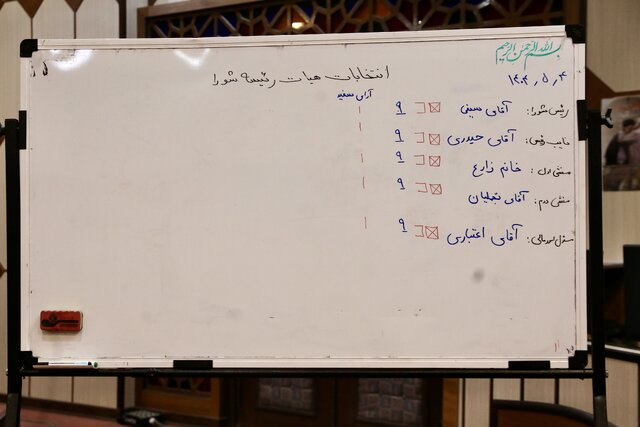 بسم الله الرحمن الرحیم
۱۴۰۴٫۵٫۴
انتخابات هیات رئیسه شورا
آرای سفید
رئیس شورا: آقای سینی ۹ ۱
نایب رئیس: آقای حیدری ۹ ۱
منشی اول: خانم زارع ۹ ۱
منشی دوم: آقای تجلیان ۹ ۱
آقای اعتباری ۹ ۱